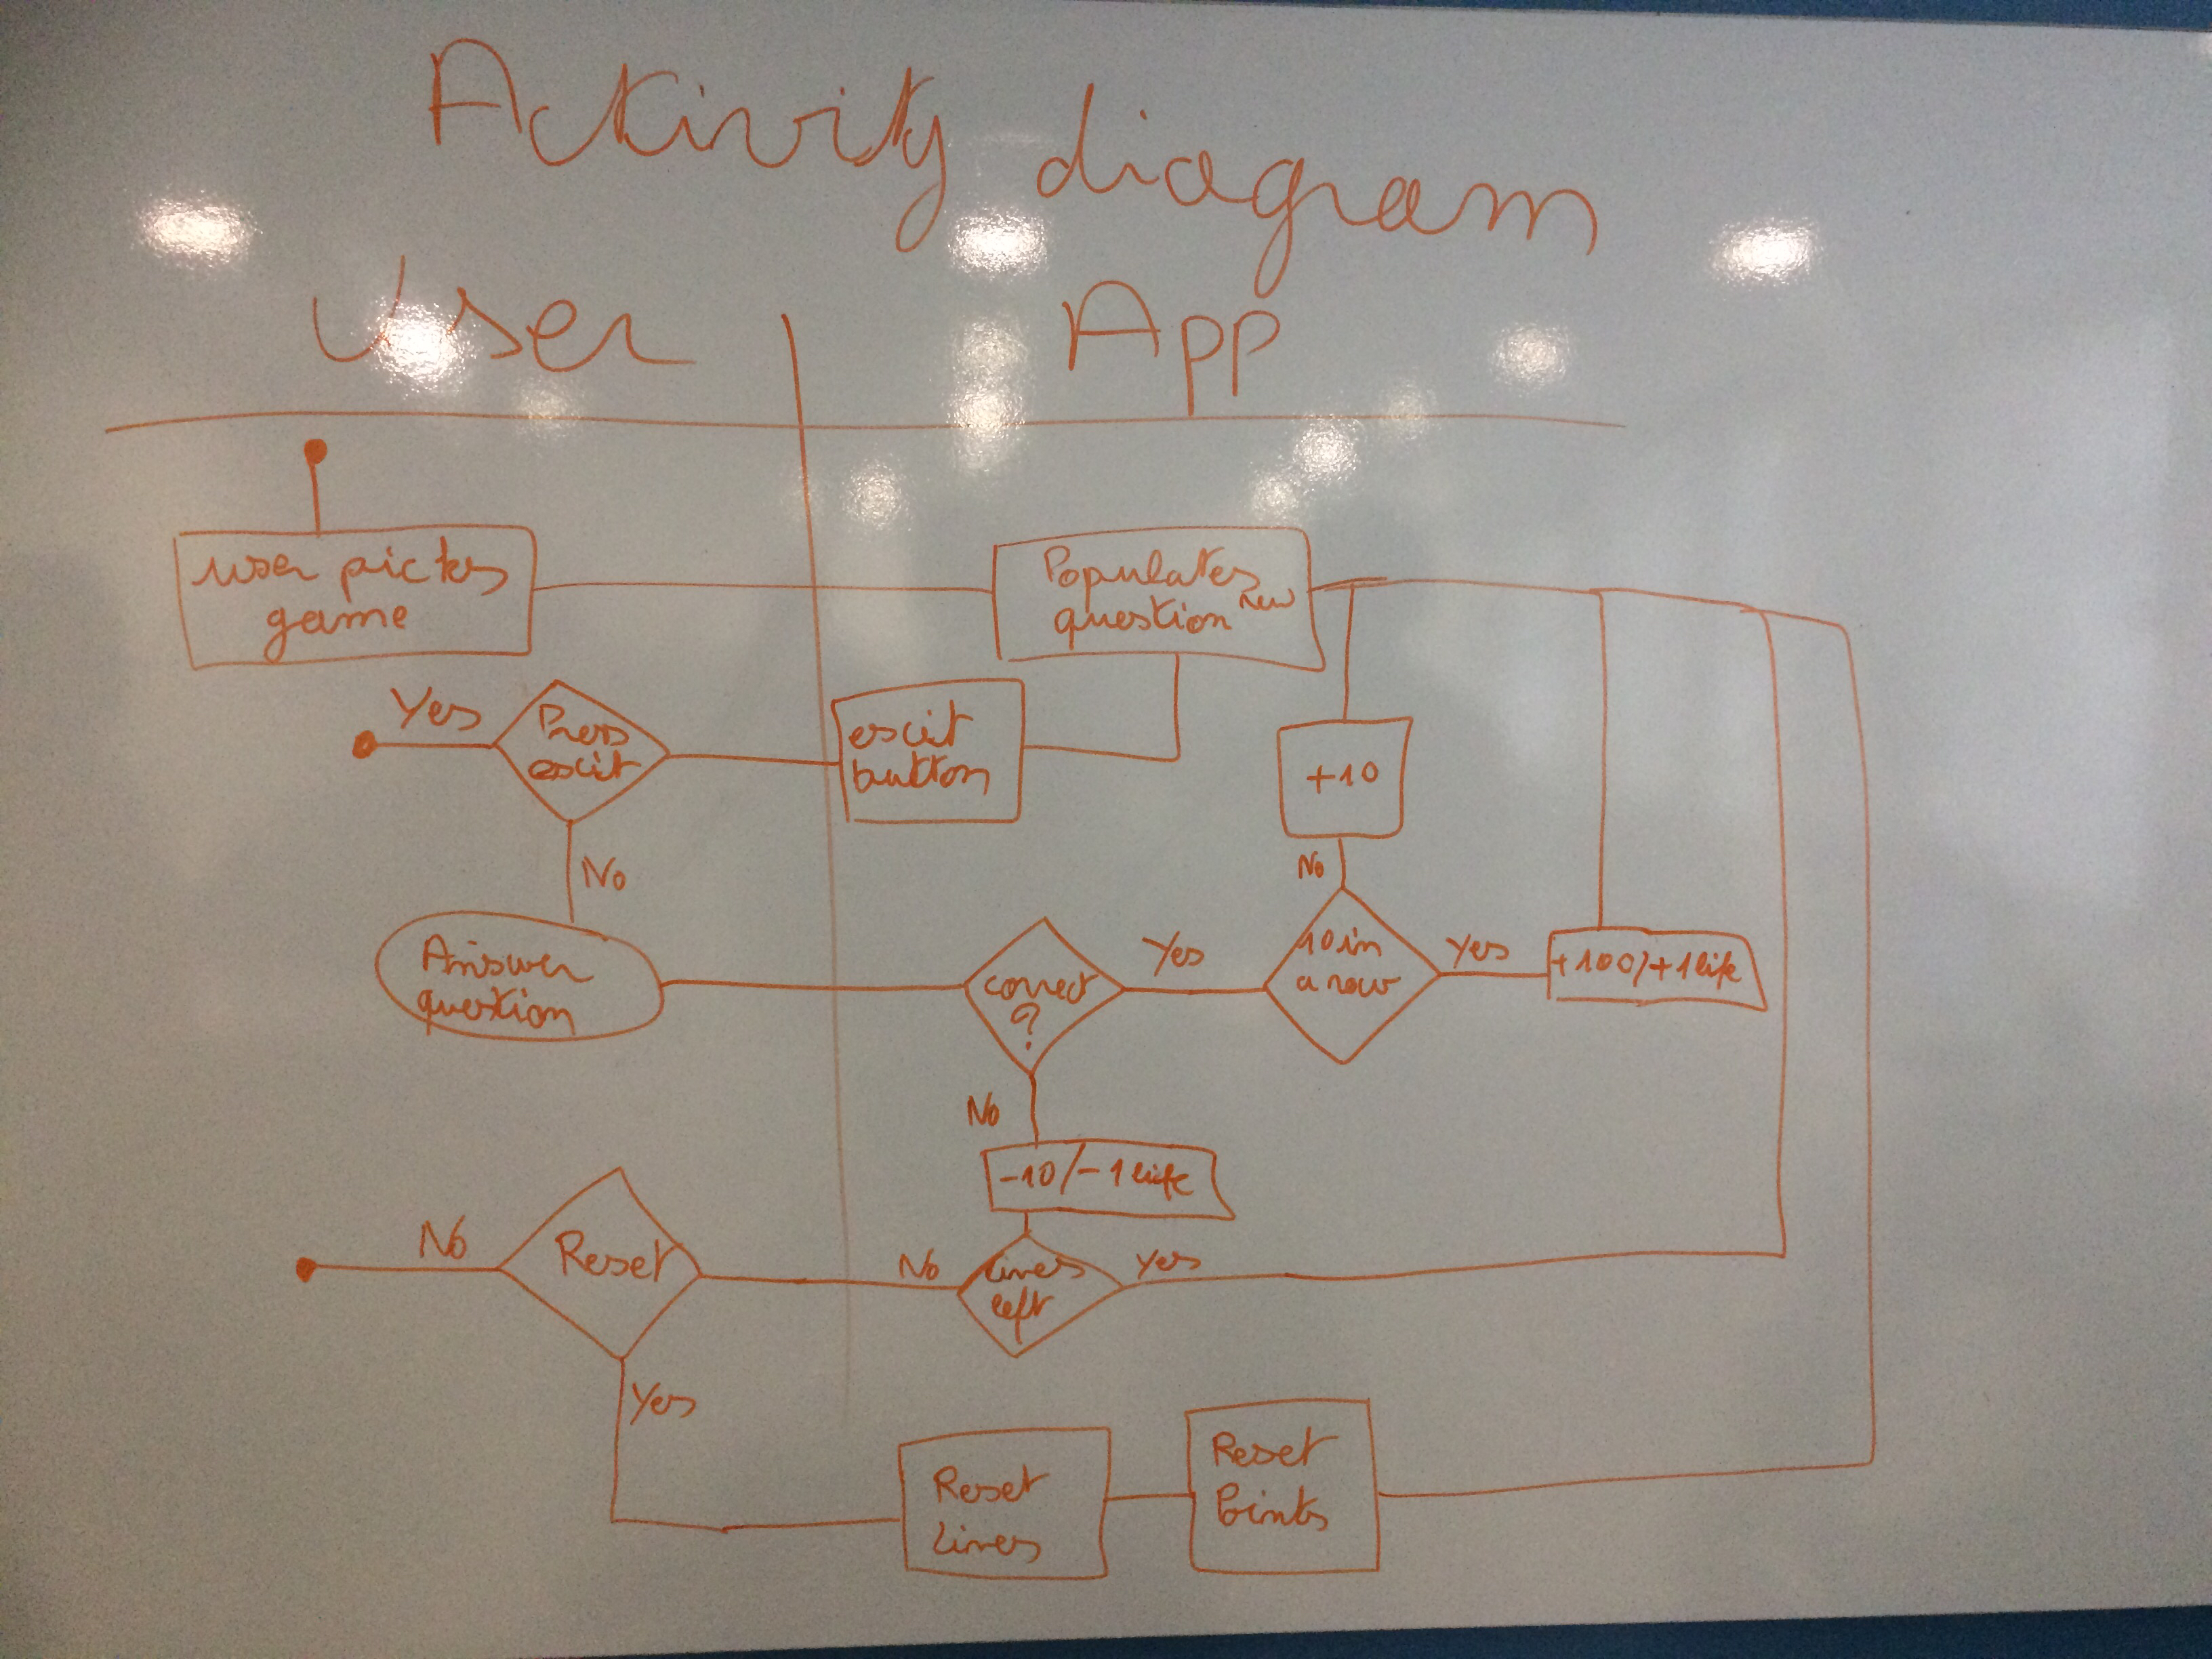 Activity diagram
User
App
user picks
game
Populates
new
question
Yes
Press
exit
exit
button
+10
No
No
Answer
question
correct
?
Yes
10 in
a row
Yes
+100/+1life
No
-10/-1life
No
Reset
No
Lives
left
Yes
Yes
Reset
Lives
Reset
Points